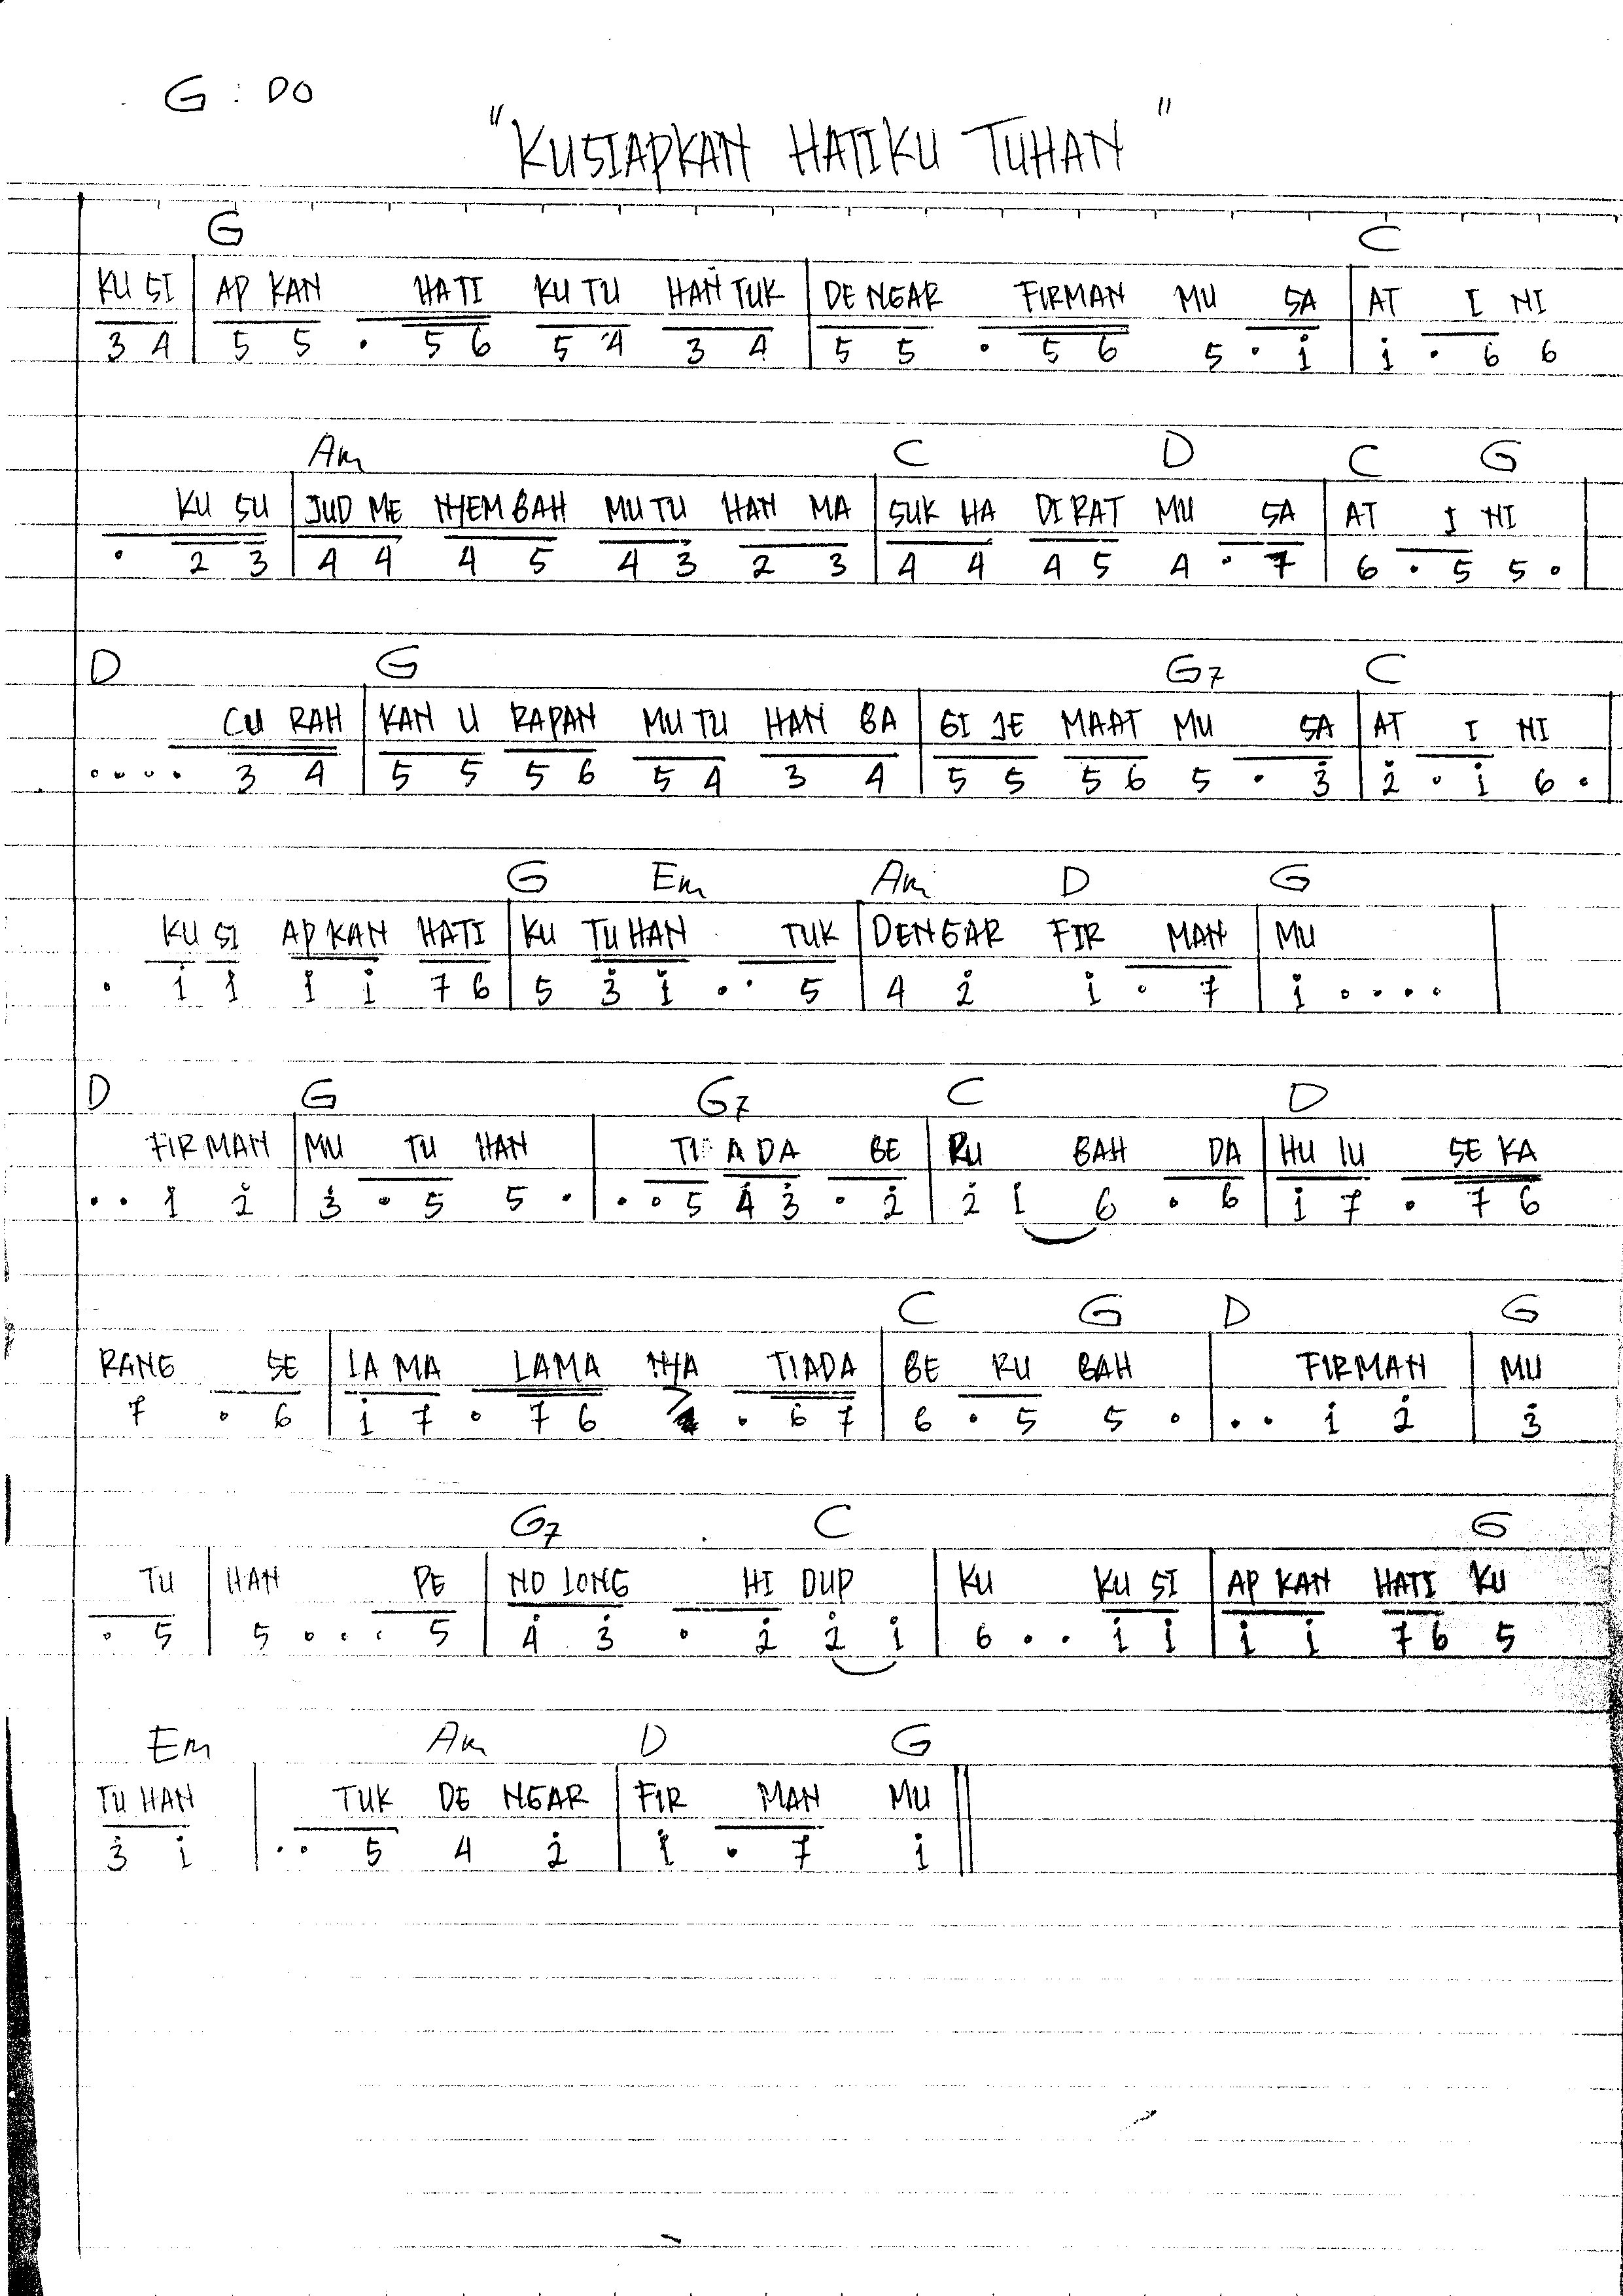 G : DO
"KUSIAPKAN HATIKU TUHAN"
G C
KU SI | AP KAN HATI KU TU HAN TUK | DE NGAR FIRMAN MU SA | AT I NI
3 4 | 5 5 . 5 6 5 4 3 4 | 5 5 . 5 6 5 . i | i . 6 6
Am C D C G
KU SU | JUD ME NYEM BAH MU TU HAN MA | SUK HA DI RAT MU SA | AT I NI
. 2 3 | 4 4 4 5 4 3 2 3 | 4 4 4 5 4 . 7 | 6 . 5 5 . |
D G G7 C
CU RAH | KAN U RAPAN MU TU HAN BA | GI JE MAAT MU SA | AT I NI
. . . . 3 4 | 5 5 5 6 5 4 3 4 | 5 5 5 6 5 . 3̇ | 2̇ . i 6 . |
G Em Am D G
KU SI AP KAN HATI | KU TU HAN TUK | DENGAR FIR MAN | MU
. i i i i 7 6 | 5 3̇ i . . 5 | 4 2̇ i . 7 | i . . . . |
D G G7 C D
FIR MAN | MU TU HAN | TI A DA BE | RU BAH DA | HU LU SE KA
. . i 2̇ | 3̇ . 5 5 . | . . 5 4̇ 3̇ . 2̇ | 2̇ i 6 . 6 | i 7 . 7 6
C G D G
RANG SE | LA MA LAMA NYA TIADA | BE RU BAH | FIRMAN | MU
7 . 6 | i 7 . 7 6 7 . 6 7 | 6 . 5 5 . | . . i 2̇ | 3̇
G7 C G
TU | HAN PE | NO LONG HI DUP | KU KU SI | AP KAN HATI KU
. 5 | 5 . . . 5 | 4̇ 3̇ . 2̇ 2̇ i | 6 . . i i | i i 7 6 5
Em Am D G
TU HAN | TUK DE NGAR | FIR MAN MU ||
3̇ i | . . 5 4 2̇ | i . 7 i ||